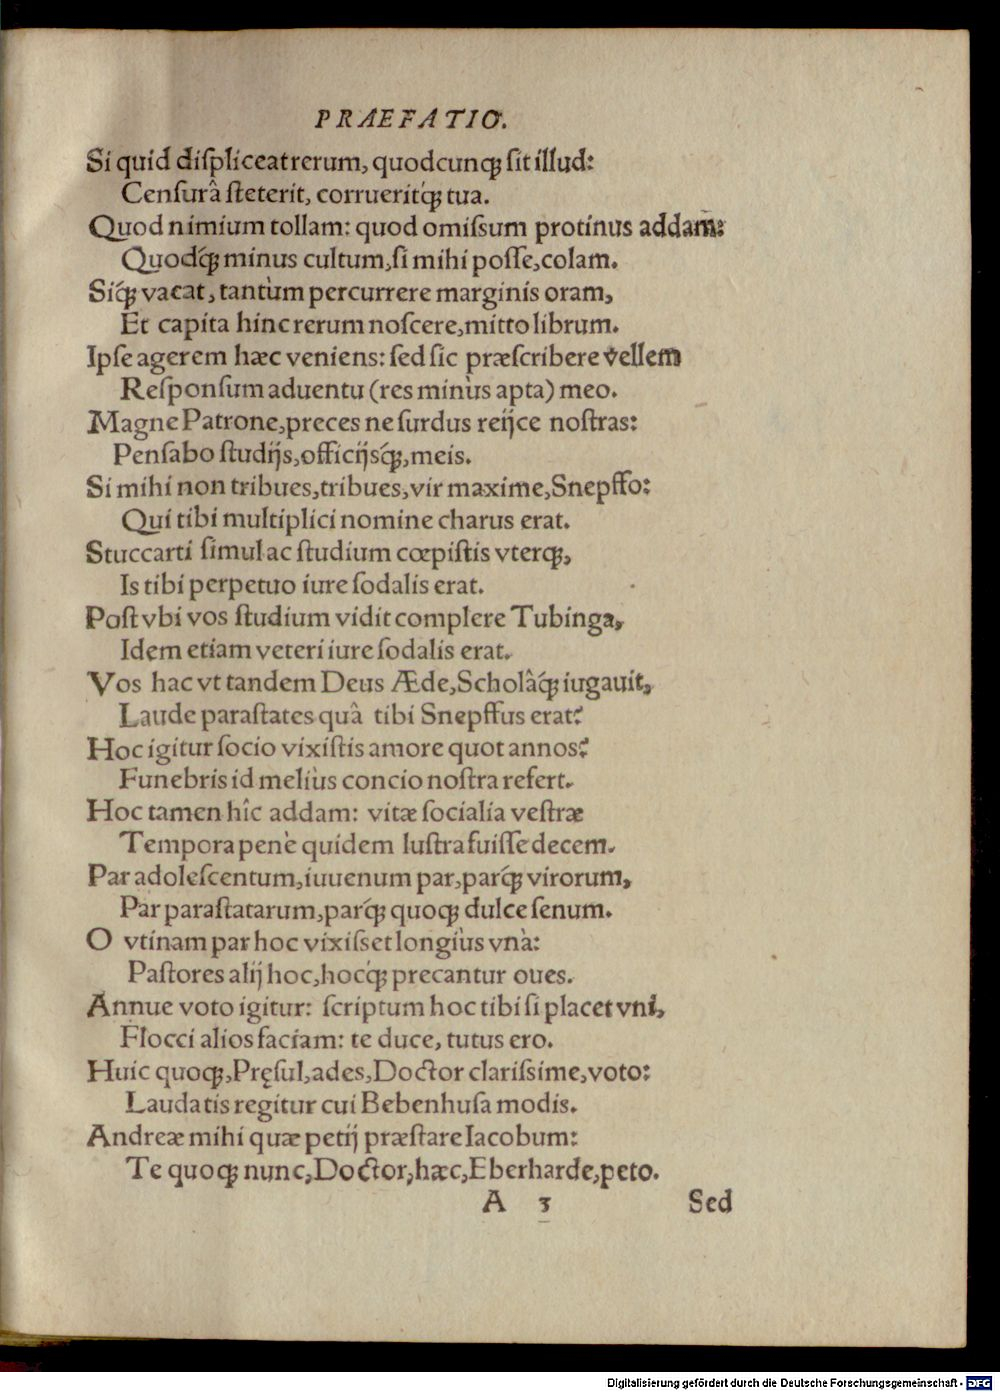 PRAEFATIO.
Si quid diſpliceat rerum, quodcunqꝫ ſit illud:
Cenſurâ ſteterit, corrueritq́ꝫ tua.
Quod nimium tollam: quod omiſsum protinus addam:
Quodq́ꝫ minus cultum, ſi mihi poſſe, colam.
Siq́ꝫ vacat, tantùm percurrere marginis oram,
Et capita hinc rerum noſcere, mitto librum.
Ipſe agerem hæc veniens: ſed ſic præſcribere vellem
Reſponſum aduentu (res minùs apta) meo.
Magne Patrone, preces ne ſurdus reijce noſtras:
Penſabo ſtudijs, officijsq́ꝫ, meis.
Si mihi non tribues, tribues, vir maxime, Snepffo:
Qui tibi multiplici nomine charus erat.
Stuccarti ſimul ac ſtudium cœpiſtis vterqꝫ,
Is tibi perpetuo iure ſodalis erat.
Poſt vbi vos ſtudium vidit complere Tubinga,
Idem etiam veteri iure ſodalis erat.
Vos hac vt tandem Deus Æde, Scholâq́ꝫ iugauit,
Laude paraſtates quâ tibi Snepffus erat?
Hoc igitur ſocio vixiſtis amore quot annos?
Funebris id meliùs concio noſtra refert.
Hoc tamen hîc addam: vitæ ſocialia veſtræ
Tempora penè quidem luſtra fuiſſe decem.
Par adoleſcentum, iuuenum par, parq́ꝫ virorum,
Par paraſtatarum, parq́ꝫ quoqꝫ dulce ſenum.
O vtinam par hoc vixiſset longiùs vnà:
Paſtores alij hoc, hocq́ꝫ precantur oues.
Annue voto igitur: ſcriptum hoc tibi ſi placet vni,
Flocci alios faciam: te duce, tutus ero.
Huic quoqꝫ, Pręſul, ades, Doctor clariſsime, voto:
Laudatis regitur cui Bebenhuſa modis.
Andreæ mihi quæ petij præſtare Iacobum:
Te quoqꝫ nunc, Doctor, hæc, Eberharde, peto.
A 3 Sed
Digitalisierung gefördert durch die Deutsche Forschungsgemeinschaft - DFG